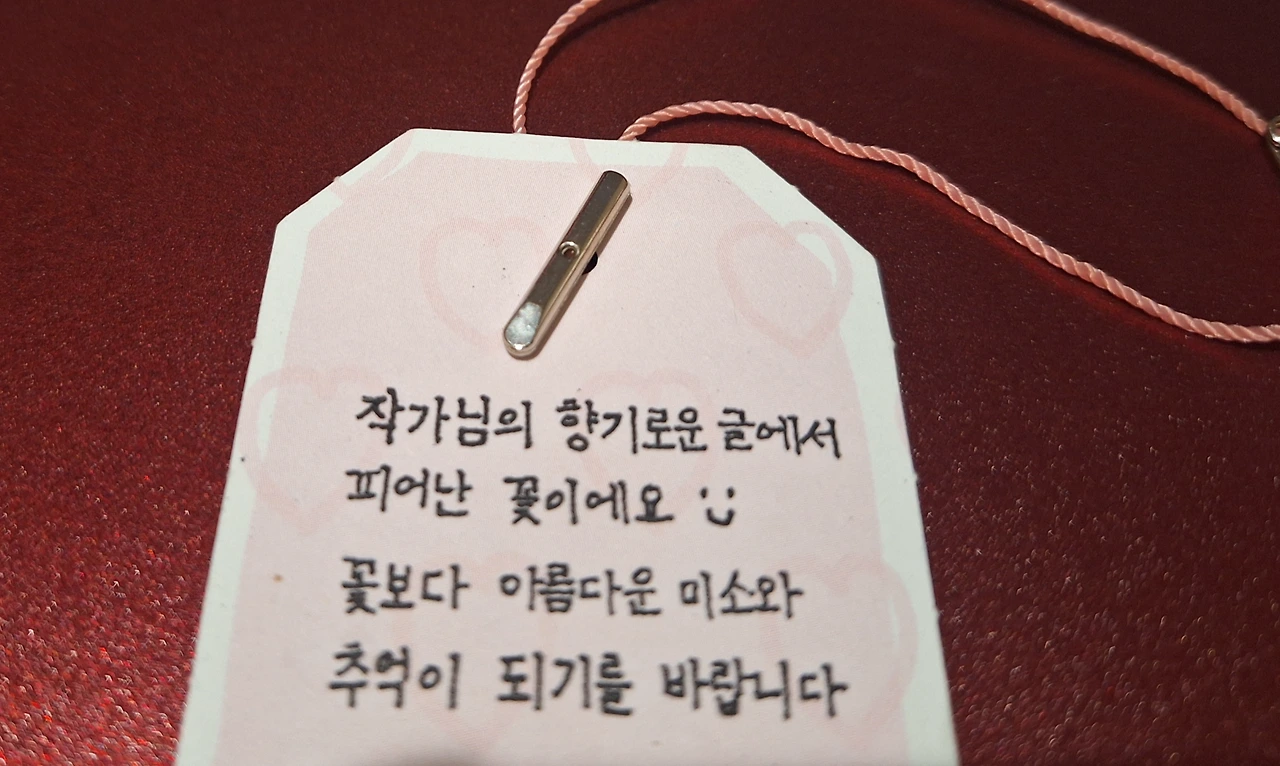 작가님의 향기로운 글에서
피어난 꽃이에요 :)
꽃보다 아름다운 미소와
추억이 되기를 바랍니다